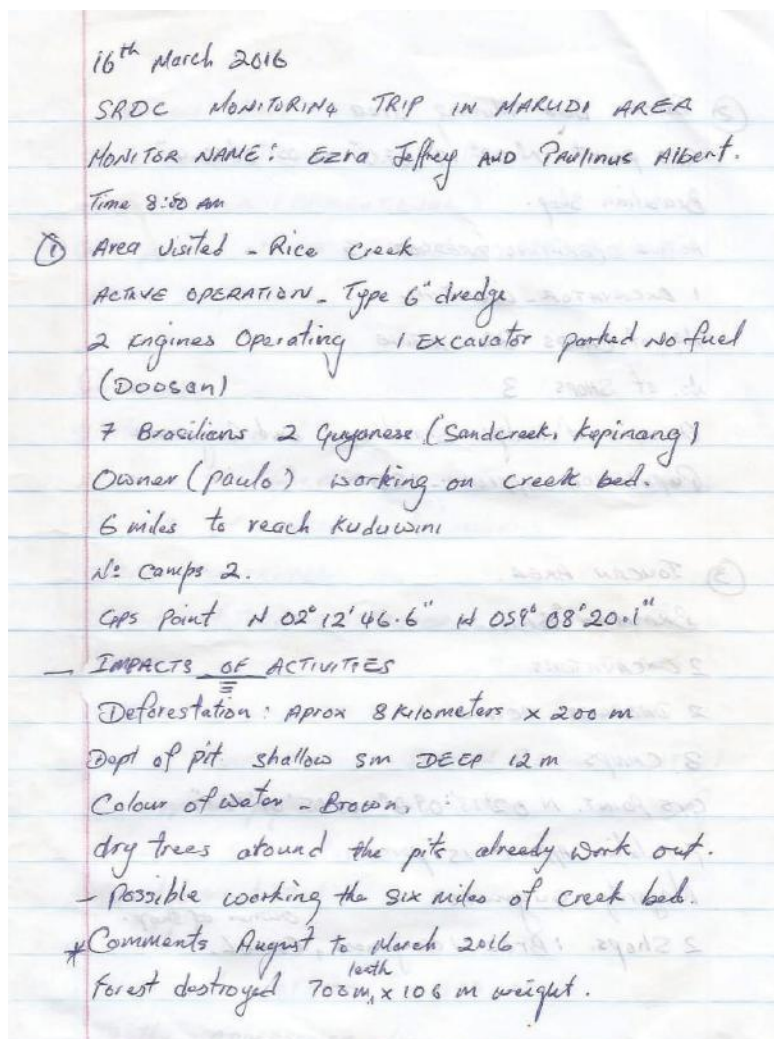 16th March 2016
SRDC MONITORING TRIP IN MARUDI AREA
MONITOR NAME: Ezra Jeffrey AND Paulinus Albert.
Time 8:00 am
① Area visited - Rice Creek
ACTIVE OPERATION - Type 6" dredge
2 Engines Operating 1 Excavator parked No fuel
(Doosan)
7 Brasilians 2 Guyanese (Sandcreek, Kepinang)
Owner (paulo) working on creek bed.
6 miles to reach Kuduwini
No: Camps 2.
GPS Point N 02° 12' 46.6" W 059° 08' 20.1"
- IMPACTS OF ACTIVITIES
Deforestation: Aprox 8 Kilometers x 200 m
Dept of pit shallow 5m DEEP 12 m
Colour of water - Brown.
dry trees around the pits already work out.
- Possible working the six miles of creek bed.
* Comments August, to March 2016
leath
Forest destroyed 700m, x 106 m weight.